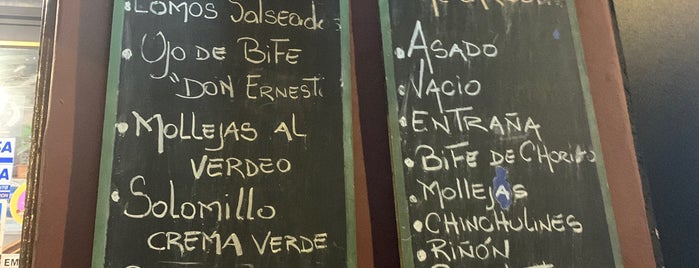 • LOMOS SALSEADOS
• OJO DE BIFE
"DON ERNESTI
• MOLLEJAS AL
VERDEO
• SOLOMILLO
CREMA VERDE
• ASADO
• VACIO
• ENTRAÑA
• BIFE DE CHORIZO
• MOLLEJAS
• CHINCHULINES
• RIÑÓN